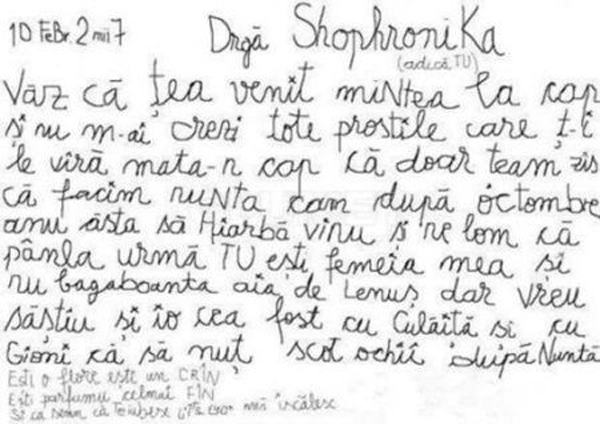 10 FeBr. 2 mii 7
Drgă Shophronika
(adică TU)
Văz că țea venit miNtea la cap
și nu m-ai crezi tote prostile care ț-i
le viră mata-n cap că doar team zis
că facim nuNta cam după octombre
anu ăsta să Hiarbă vinu și ne lom că
pânla urmă TU ești femeia mea și
nu bagaboanta aia de Lenuș dar vreu
săștiu și io cea fost cu Culăită și cu
Gioni că să nuț scot ochii după Nuntă
Ești o flore ești un CRIN
Ești parfumu celmai FIN
Și ca semn că Teiubesc mă iscălesc